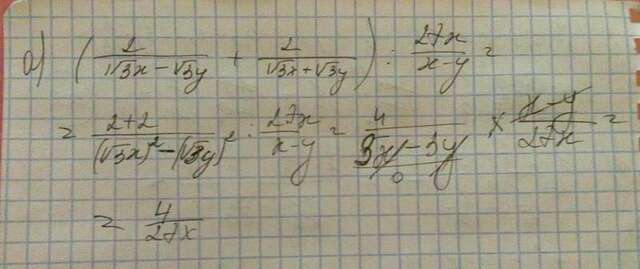 а) (2/(√3x − √3y) + 2/(√3x + √3y)) : 27x/(x−y) =
= (2+2)/((√3x)² − (√3y)²) : 27x/(x−y) = 4/(3x − 3y) × (x−y)/27x =
= 4/27x